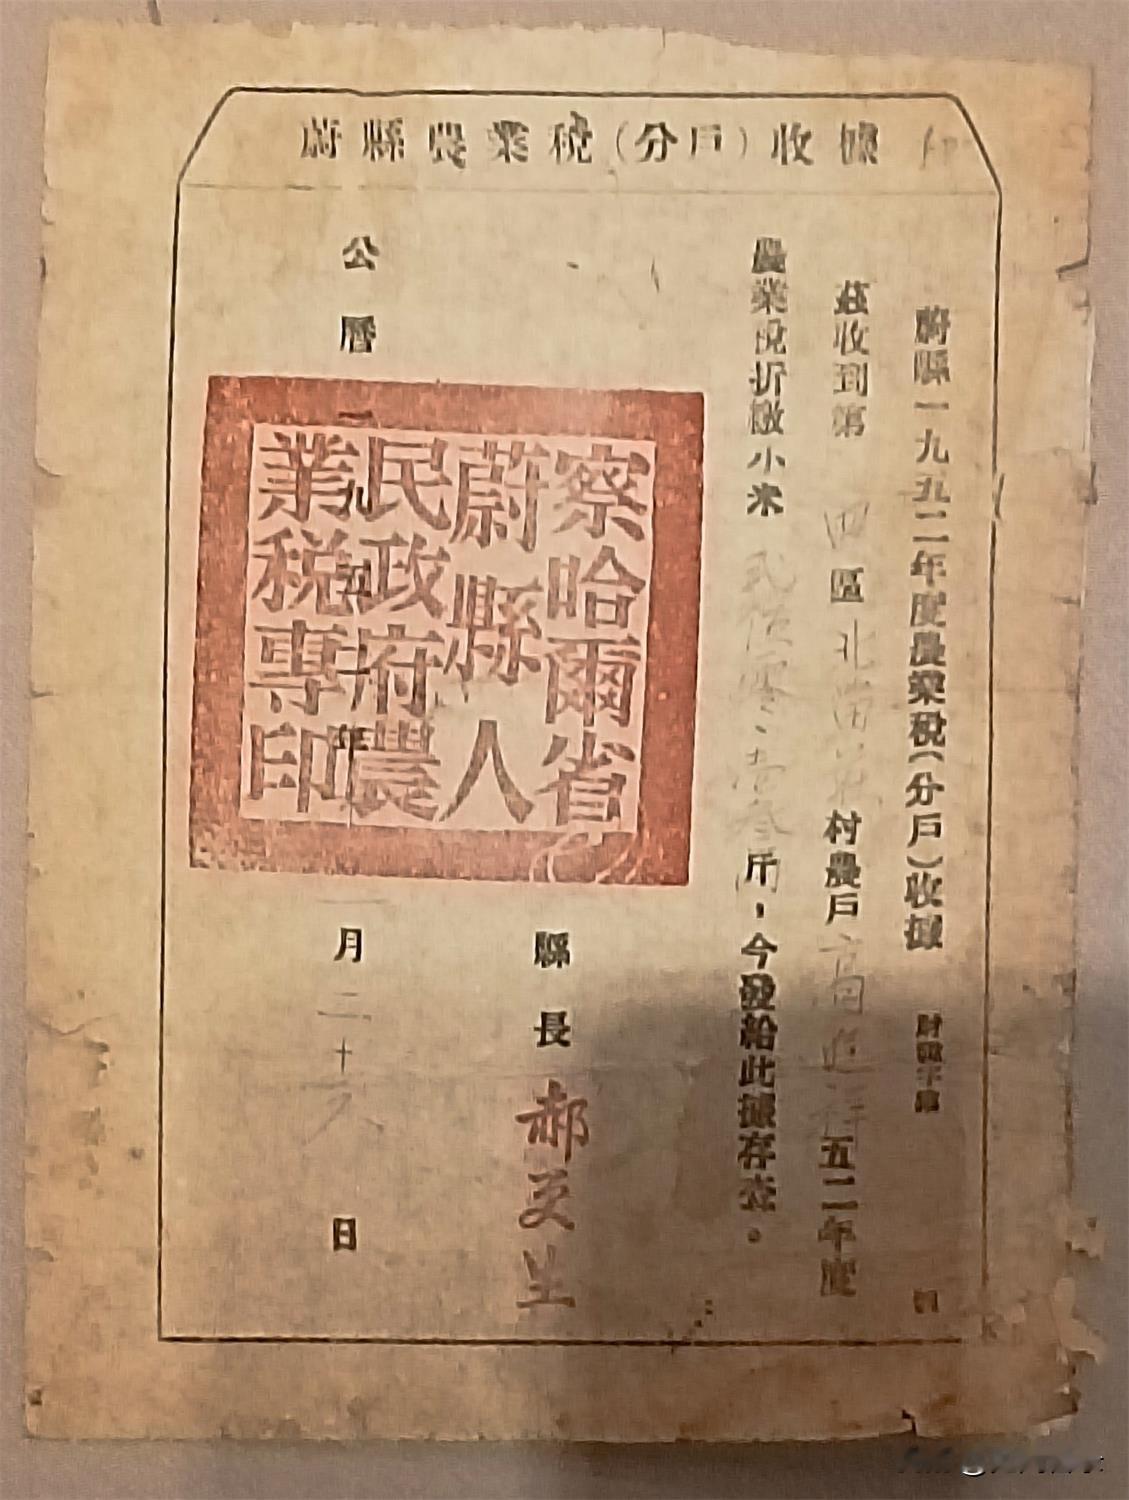 蔚縣農業稅(分戶)收據
蔚縣一九五二年度農業稅(分戶)收據 財農字第 號
茲收到第四區北 村農戶高進 五二年度
農業稅折繳小米貳佰零壹叁斤,今發給此據存查。
縣長 郝
公曆一九 年一月二十六日
察哈爾省
蔚縣人
民政府農
業稅專印